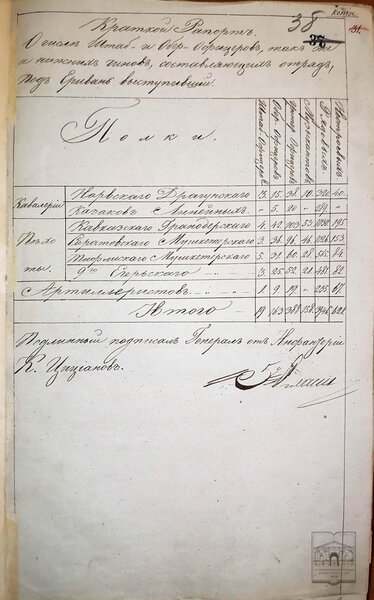 копия
38
37
31.
Краткой Рапортъ.
О числѣ Штаб- и Обер-Офицеровъ, такъ
и нижнихъ чиновъ, составляющемъ отрядъ,
подъ Еривань выступившій.
Полки.
Штаб Офицеровъ
Обер Офицеровъ
Унтер Офицеровъ
Музыкантовъ
Рядовыхъ
Нестроевыхъ
Кавалеріи
Нарвскаго Драгунскаго 3. 15. 38. 10. 320. 40.
Казаковъ Линейныхъ „ 5. 20. „
Пѣхоты.
Кавказскаго Гранодерскаго 4. 42. 103. 53. 1030. 195
Саратовскаго Мушкетерскаго 3. 36. 96. 46. 1026. 253
Тифлисскаго Мушкетерскаго 5. 31. 60. 28. 565. 84
дто Егерьскаго 3. 25. 52. 21. 481. 82
Артиллеристовъ 1. 9. 19. „ 225. 67.
Итого 19. 163. 388. 158. 3946. 821.
Подлинный подписалъ Генералъ отъ Инфантеріи
К. Циціановъ.